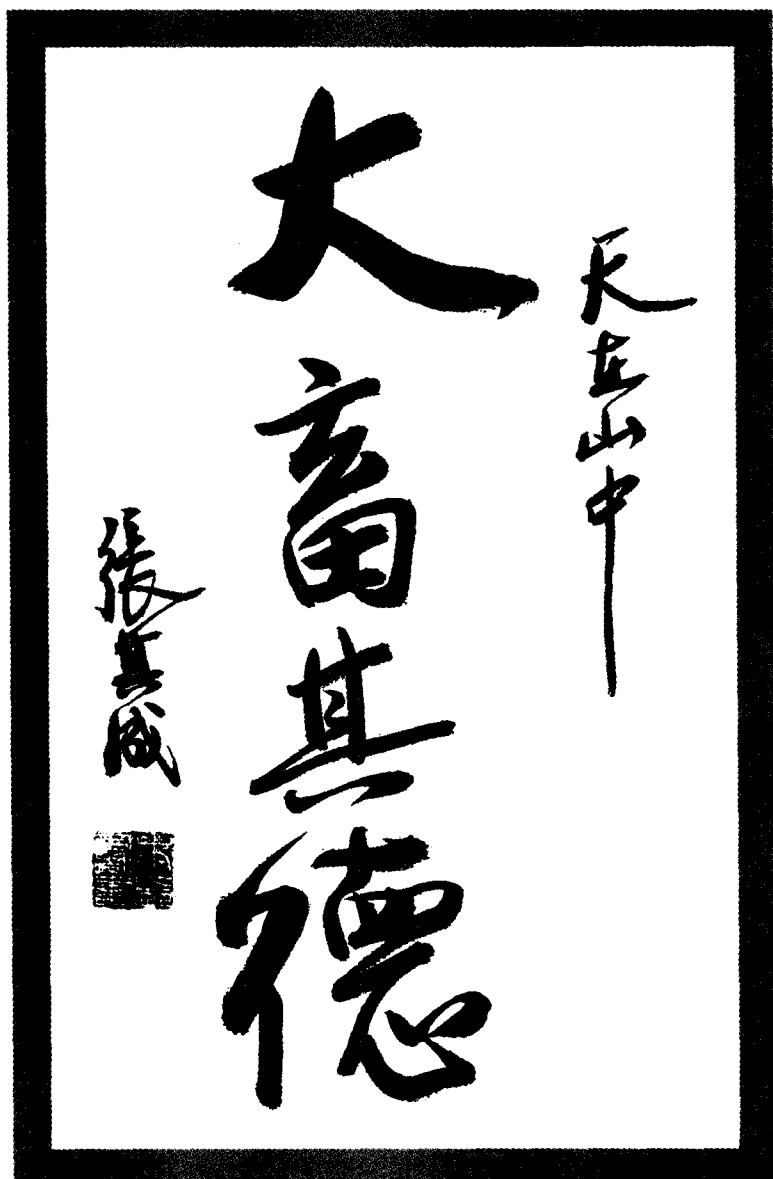 天在山中
大畜其德
張其成